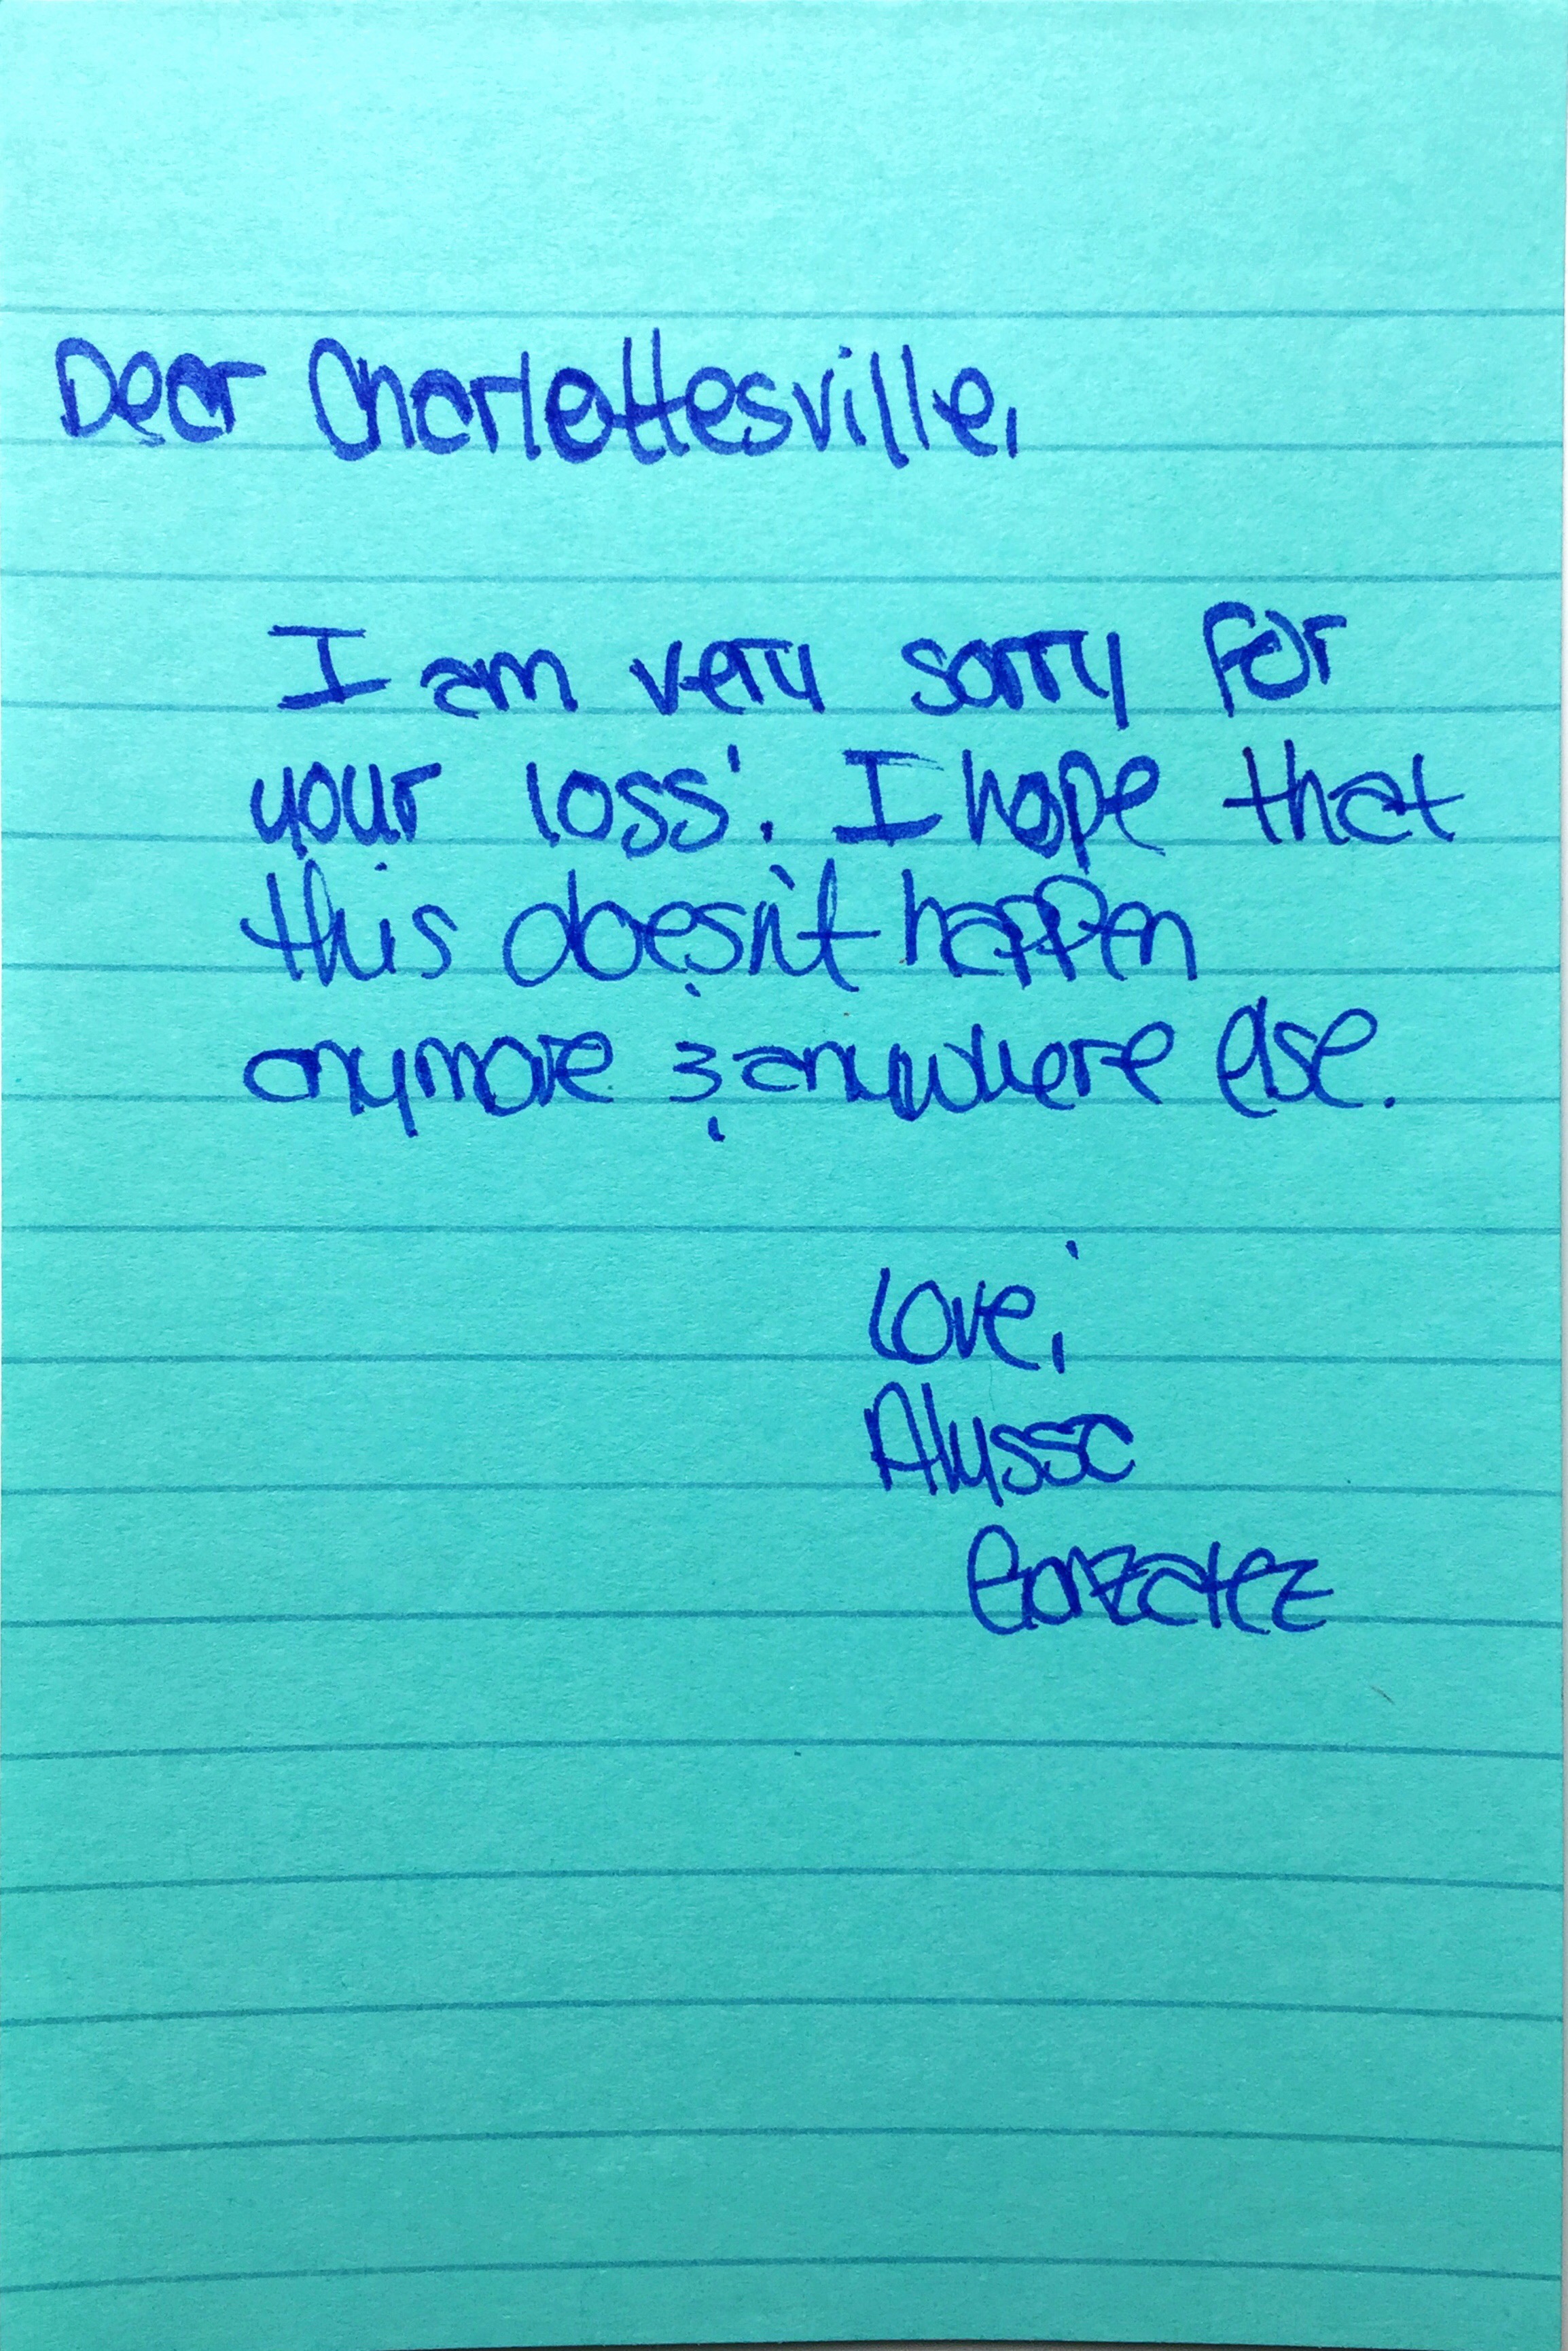 Dear Charlottesville,
I am very sorry for
your loss. I hope that
this doesn't happen
anymore & anywhere else.
Love,
Alyssa
Gonzalez